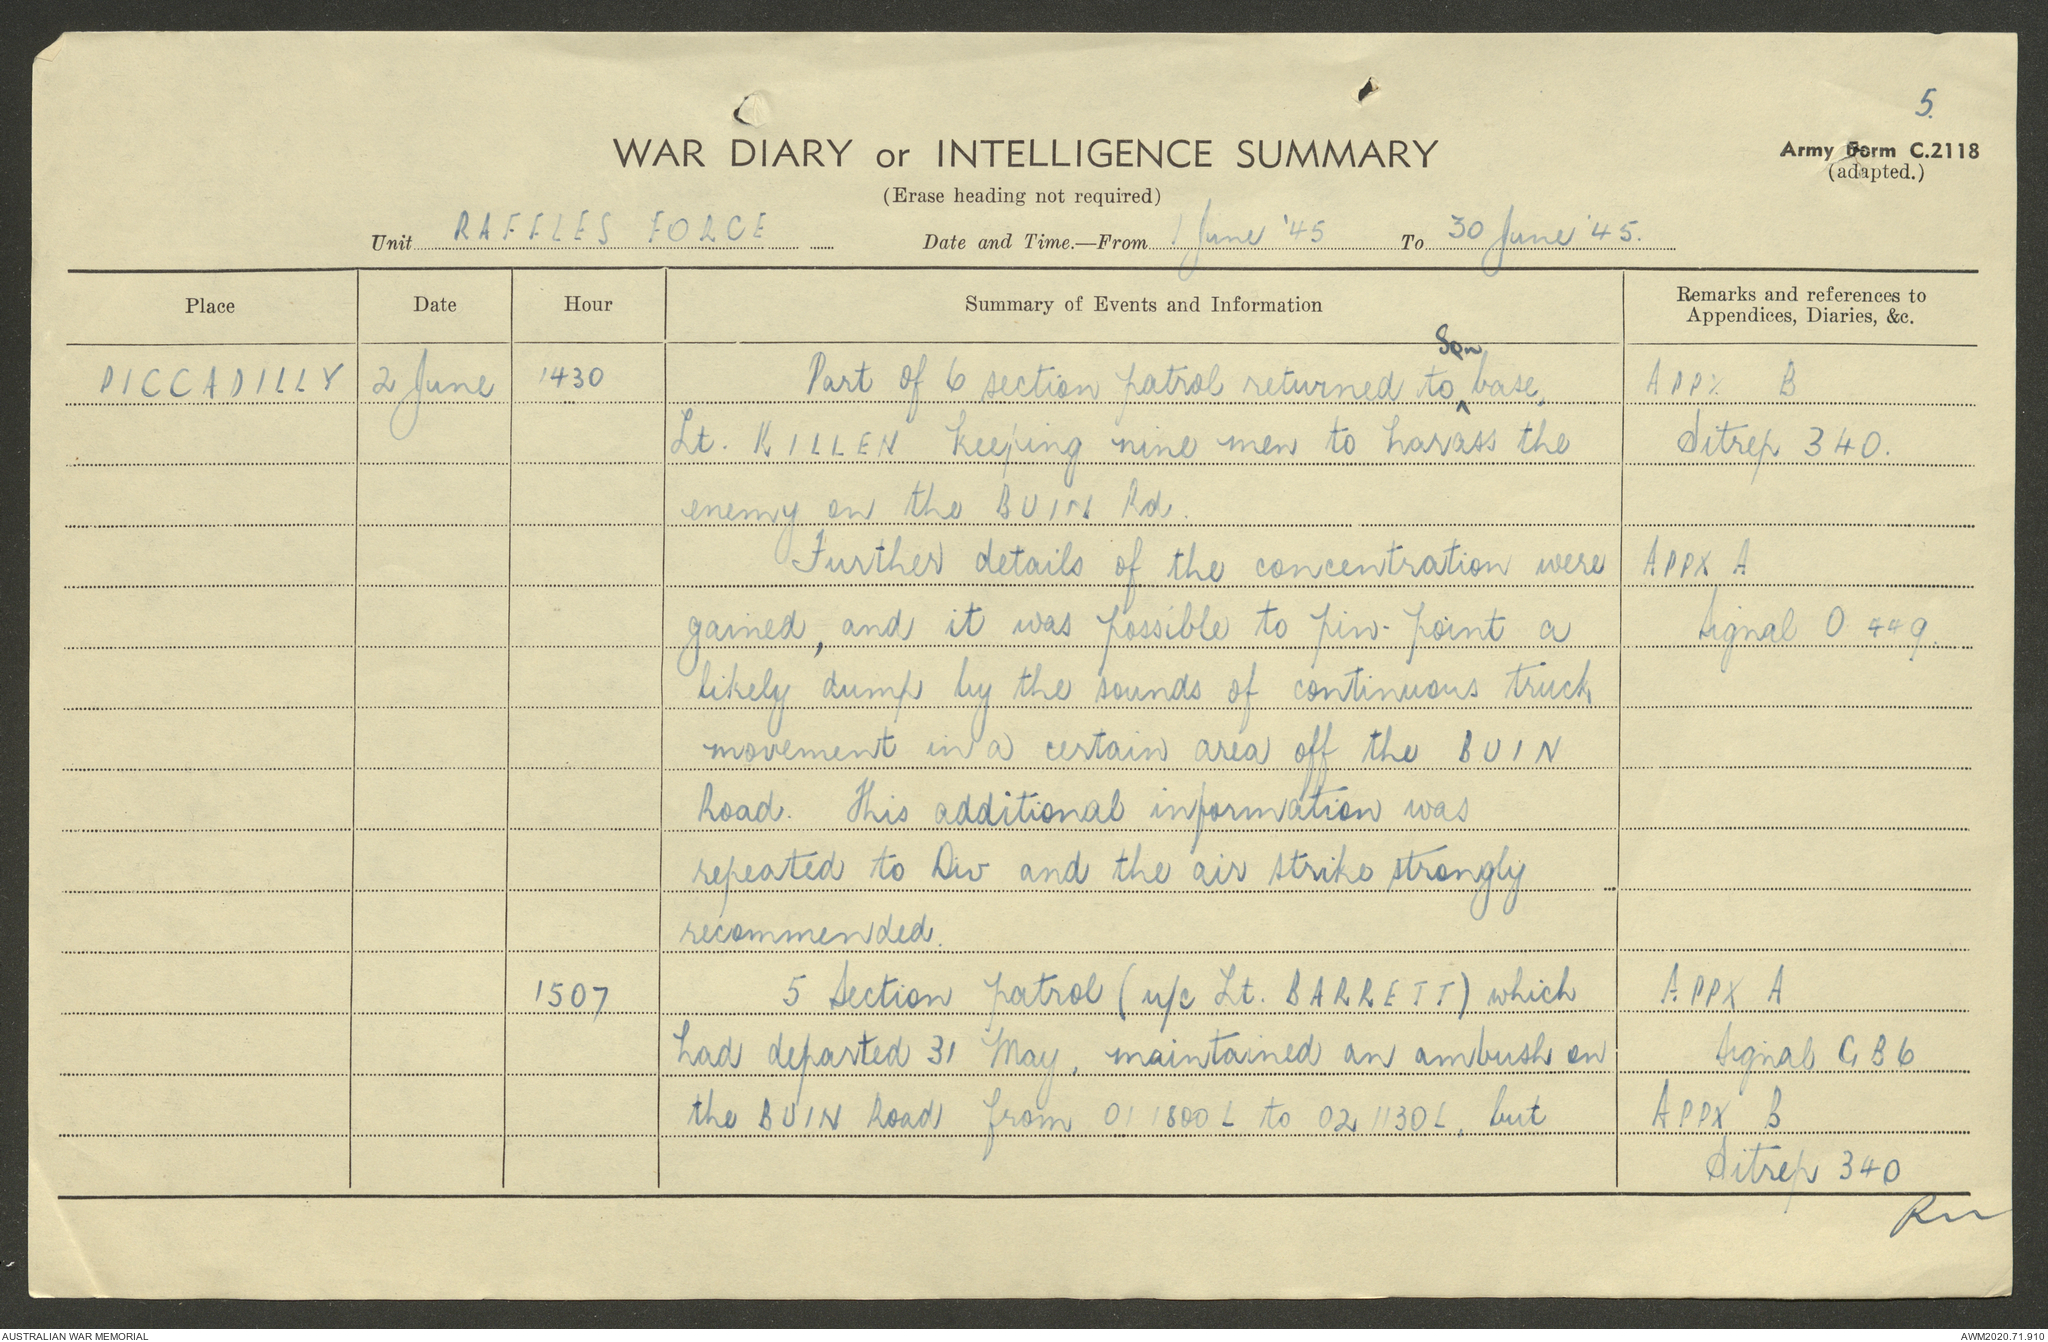 5.
WAR DIARY or INTELLIGENCE SUMMARY
Army Form C.2118
(adapted.)
(Erase heading not required)
Unit RAFFLES FORCE Date and Time.—From 1 June '45 To 30 June '45.
Place Date Hour Summary of Events and Information Remarks and references to
Appendices, Diaries, &c.
Sqn
PICCADILLY 2 June 1430 Part of 6 section patrol returned to base, APPX B
Lt. KILLEN keeping nine men to harass the Sitrep 340.
enemy on the BUIN Rd.
Further details of the concentration were APPX A
gained, and it was possible to pin-point a Signal O 449.
likely dump by the sounds of continuous truck
movement in a certain area off the BUIN
Road. This additional information was
repeated to Div and the air strike strongly
recommended.
1507 5 Section patrol (u/c Lt. BARRETT) which APPX A
had departed 31 May, maintained an ambush on Signal GB6
the BUIN Road from 01 1800L to 02 1130L, but APPX B
Sitrep 340
AUSTRALIAN WAR MEMORIAL
AWM2020.71.910